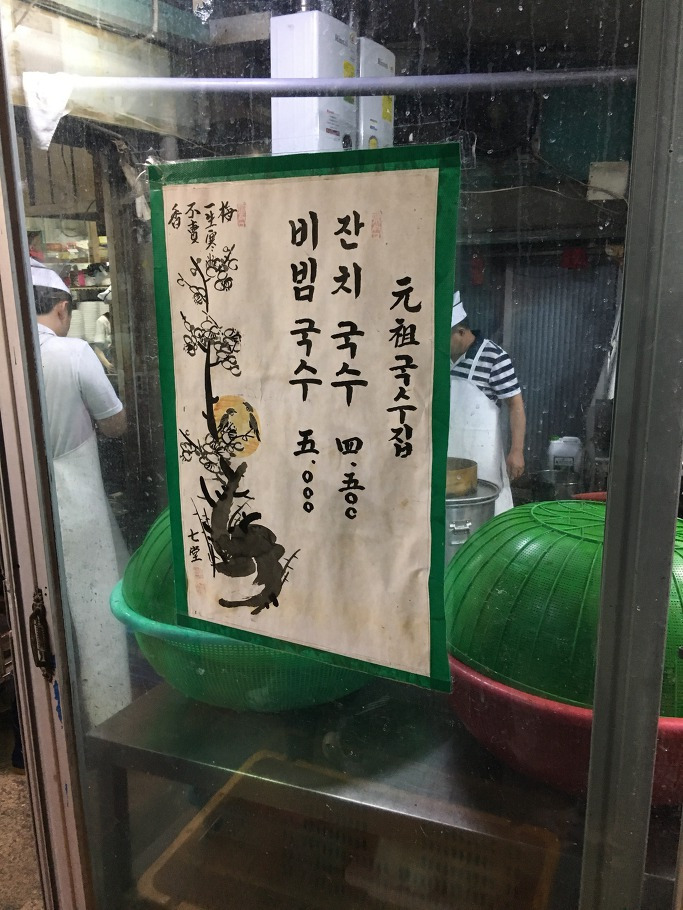 元祖국수집
잔치 국수 四.五〇〇
비빔 국수 五.〇〇〇
梅
一生寒
不賣
香
七堂